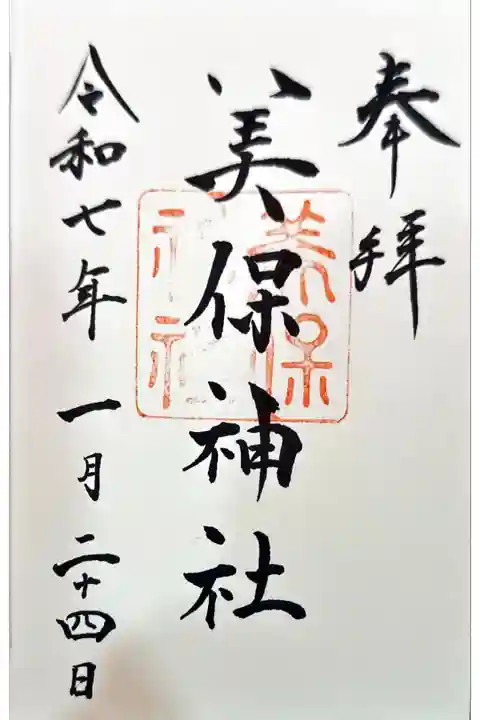 奉拝
美保神社
美保神社
令和七年一月二十四日